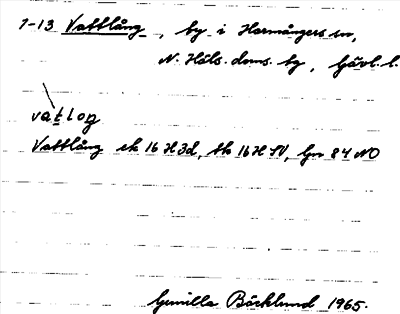 1-13 Vattlång, by i Harmångers sn,
N. Häls. doms. bg, Gävl. l.
vatloŋ
Vattlång ek 16 H 3d, tk 16 H SV, Gn 84 NO
Gunilla Bäcklund 1965.